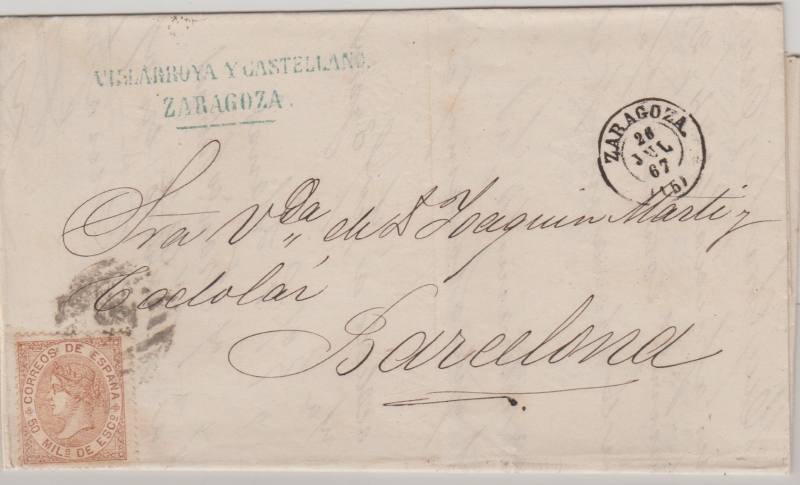 VILLARROYA Y CASTELLANO.
ZARAGOZA.
ZARAGOZA.
26
JUL
67
(15)
Sra Vda de D Joaquin Marti y
Codolar
Barcelona
CORREOS DE ESPAÑA
50 MILS DE ESCO